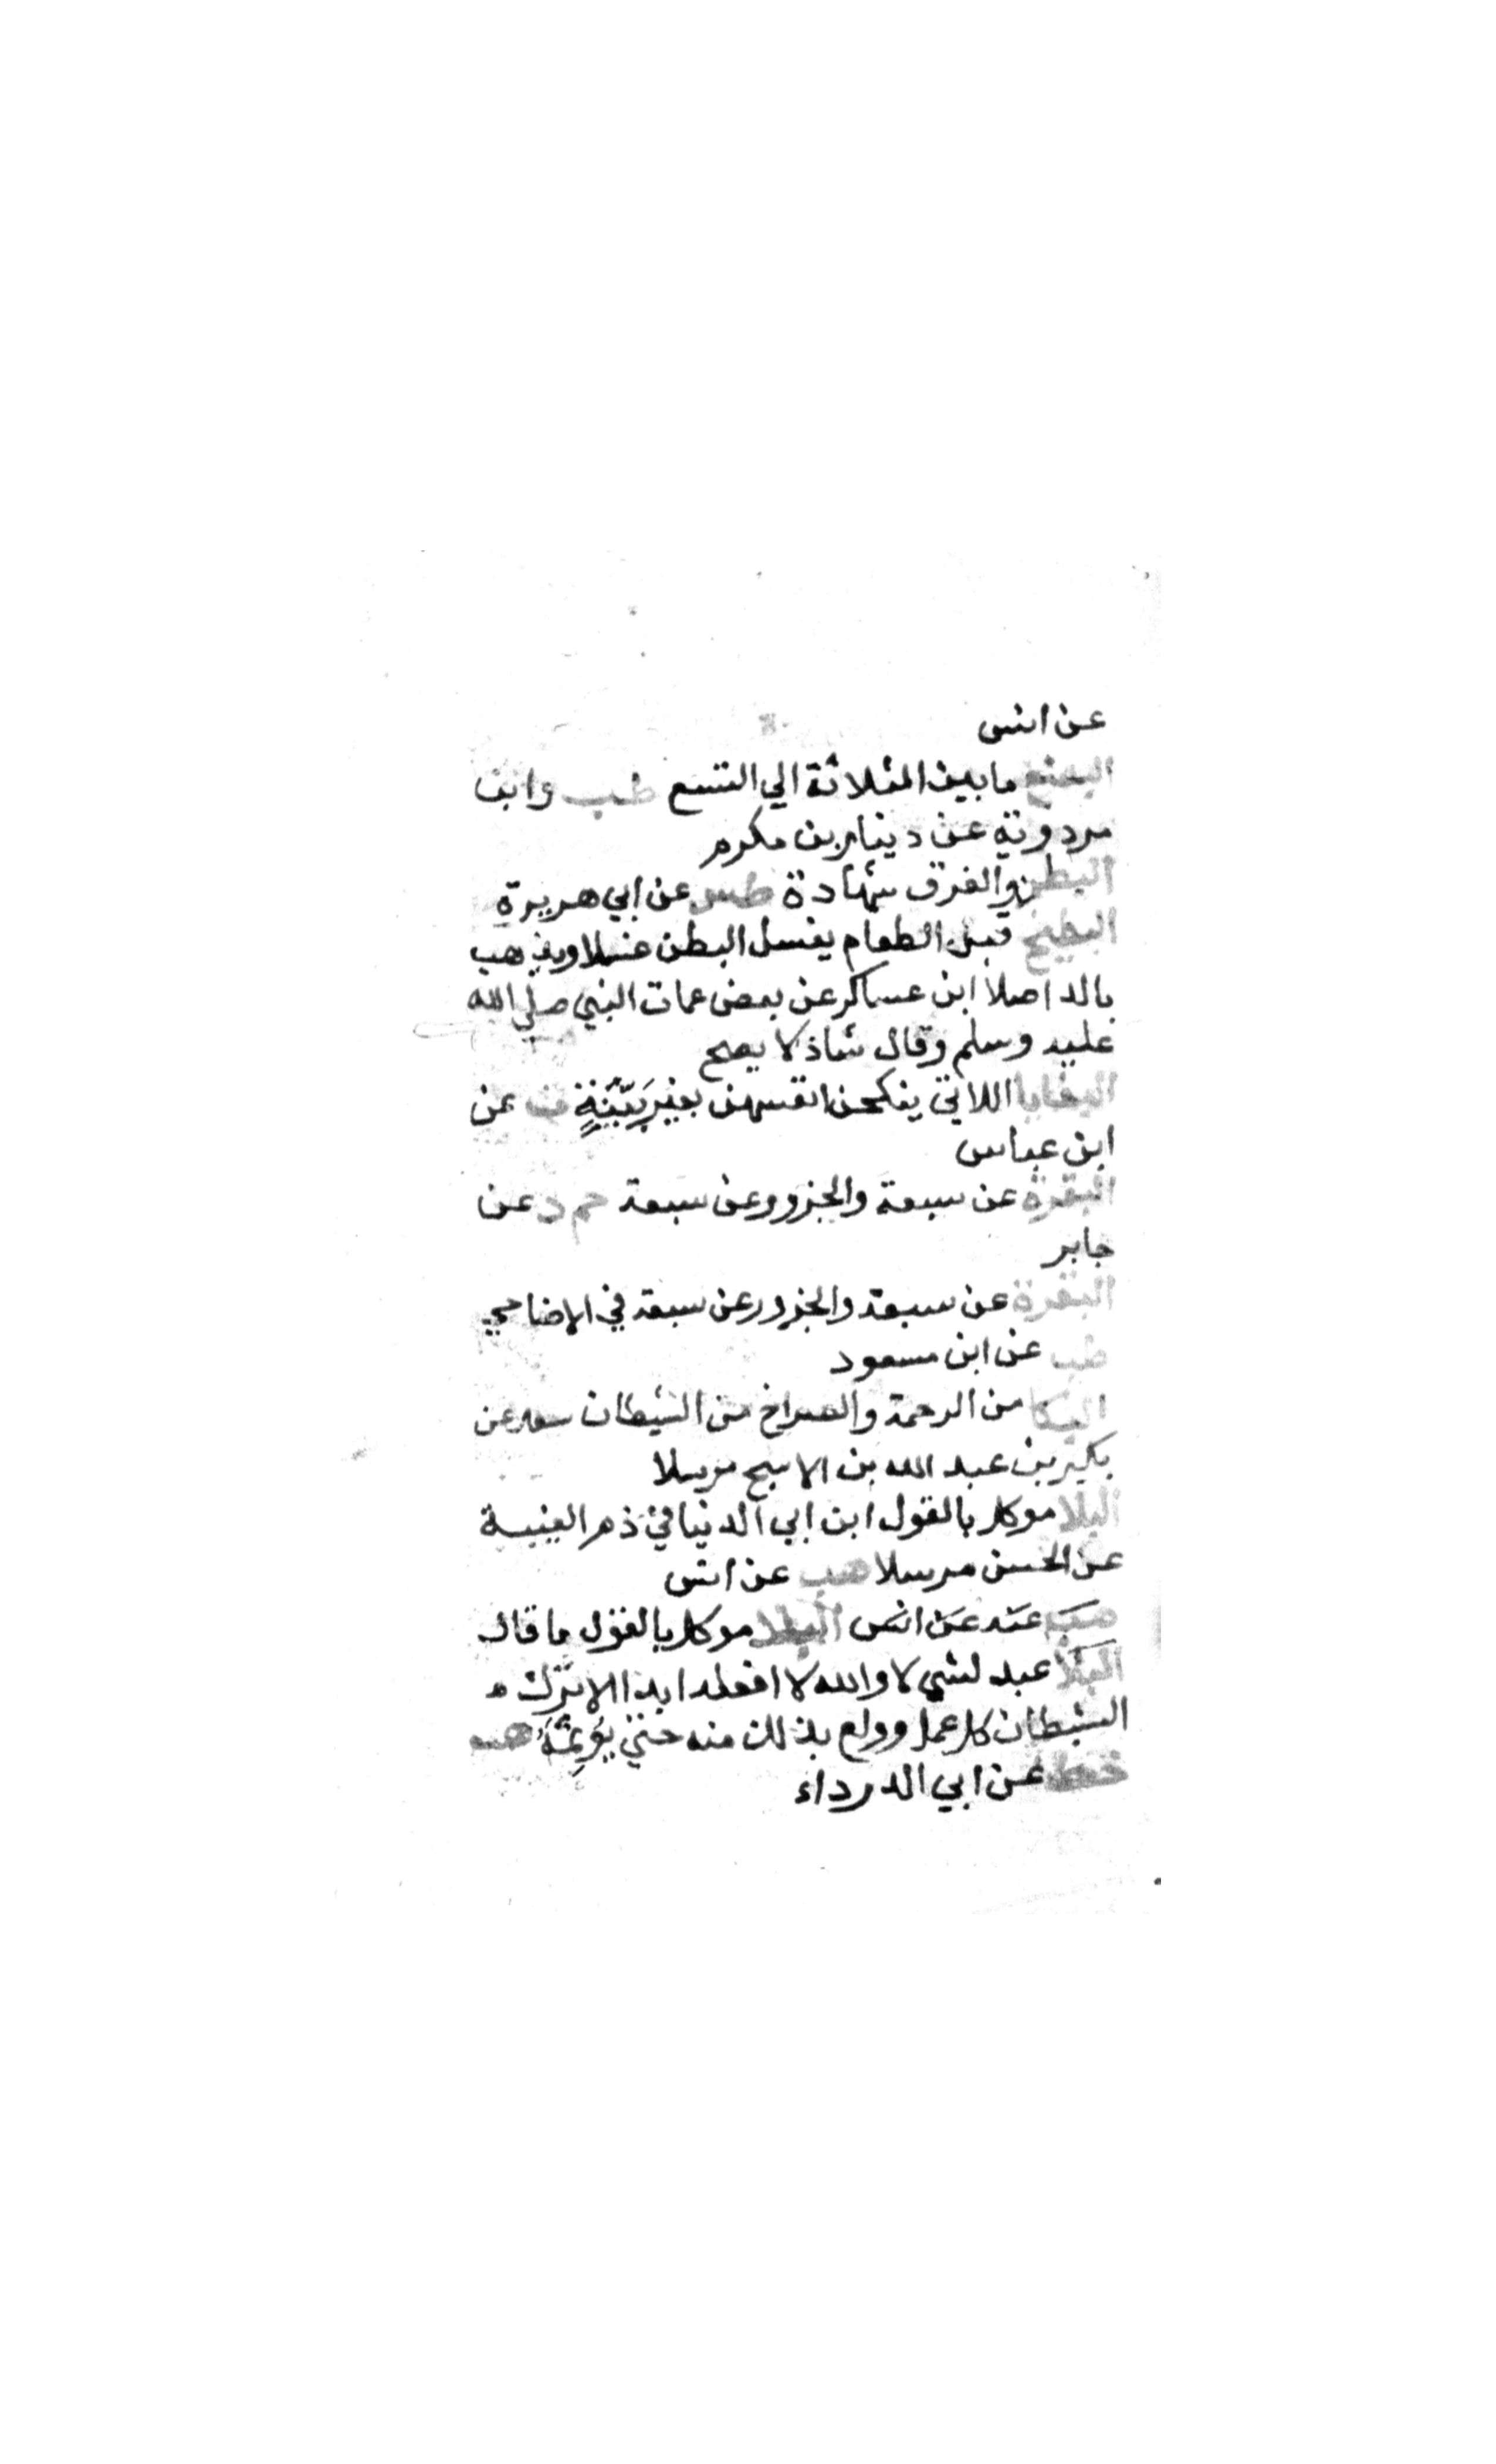 عن انس
البضع ما بين الثلاثة الي التسع طب وابن
مردوية عن دينار بن مكرم
البطن والغرق شهادة طس عن ابي هريرة
البطيخ قبل الطعام يغسل البطن غسلا ويذهب
بالداء اصلا ابن عساكر عن بعض عمات النبي صلي الله
عليه وسلم وقال شاذ لا يصح
البغايا اللاتي ينكحن انفسهن بغير بَيِّنَةٍ ت عن
ابن عباس
البقرة عن سبعة والجزور عن سبعة حم د عن
جابر
البقرة عن سبعة والجزور عن سبعة في الاضاحي
طب عن ابن مسعود
البكا من الرحمة والصراخ من الشيطان سعد عن
بكير بن عبد الله بن الاشج مرسلا
البلا موكل بالقول ابن ابي الدنيا في ذم الغيبة
عن الحسن مرسلا هب عن انس
هب عنه عن انس البلا موكل بالقول ما قال
البلا عبد لشي لا والله لا افعله ابدا الا ترك
الشيطان كل عمل وولع بذلك منه حتي يُؤَثِّمَهُ هب
خط عن ابي الدرداء